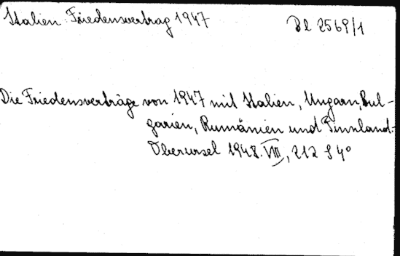 Italien: Friedensvertrag 1947 Dl 2569/1
Die Friedensverträge von 1947 mit Italien, Ungarn, Bul-
garien, Rumänien und Finnland.
Oberursel 1948. VIII, 212 S 4°